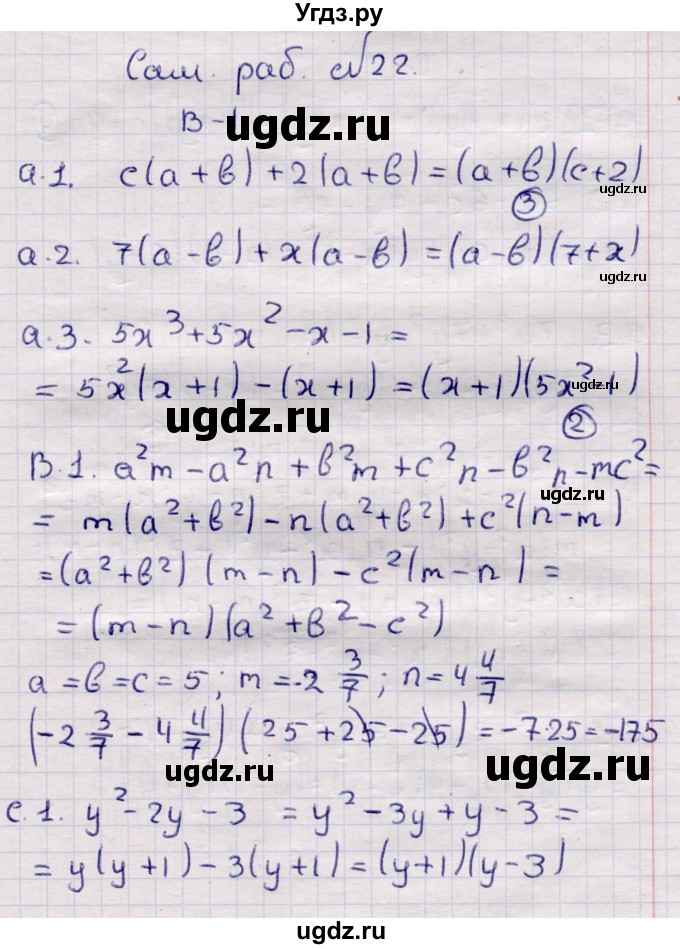 Угдз.ру
Сам. раб. №22.
В-1
ugdz.ru
а.1. c(a+в)+2(a+в)=(a+в)(c+2)
ugdz.ru
③
а.2. 7(a-в)+x(a-в)=(a-в)(7+x)
ugdz.ru
а.3. 5x³+5x²-x-1=
=5x²(x+1)-(x+1)=(x+1)(5x²-1)
ugdz.ru
ugdz.ru
②
В.1. a²m-a²n+в²m+c²n-в²n-mc²=
ugdz.ru
= m(a²+в²)-n(a²+в²)+c²(n-m)
=(a²+в²)(m-n)-c²(m-n)=
=(m-n)(a²+в²-c²)
a=в=c=5; m=-2 3/7; n=4 4/7
(-2 3/7 - 4 4/7)(25+25-25)=-7·25=-175
ugdz.ru
ugdz.ru
С.1. y²-2y-3 = y²-3y+y-3=
= y(y+1)-3(y+1)=(y+1)(y-3)
ugdz.ru